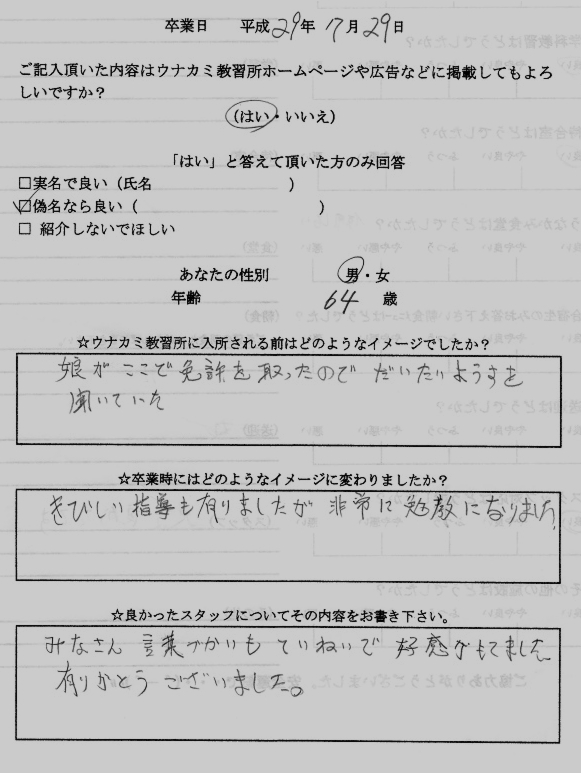 卒業日 平成29年17月29日
ご記入頂いた内容はウナカミ教習所ホームページや広告などに掲載してもよろ
しいですか？
(はい・いいえ)
「はい」と答えて頂いた方のみ回答
□実名で良い（氏名 ）
☑偽名なら良い（ ）
□ 紹介しないでほしい
あなたの性別 男・女
年齢 64 歳
☆ウナカミ教習所に入所される前はどのようなイメージでしたか？
娘がここで免許を取ったので だいたいようすを
聞いていた
☆卒業時にはどのようなイメージに変わりましたか？
きびしい指導も有りましたが 非常に勉教になりました。
☆良かったスタッフについてその内容をお書き下さい。
みなさん 言葉づかいも ていねいで 好感がもてました
有りがとうございました。